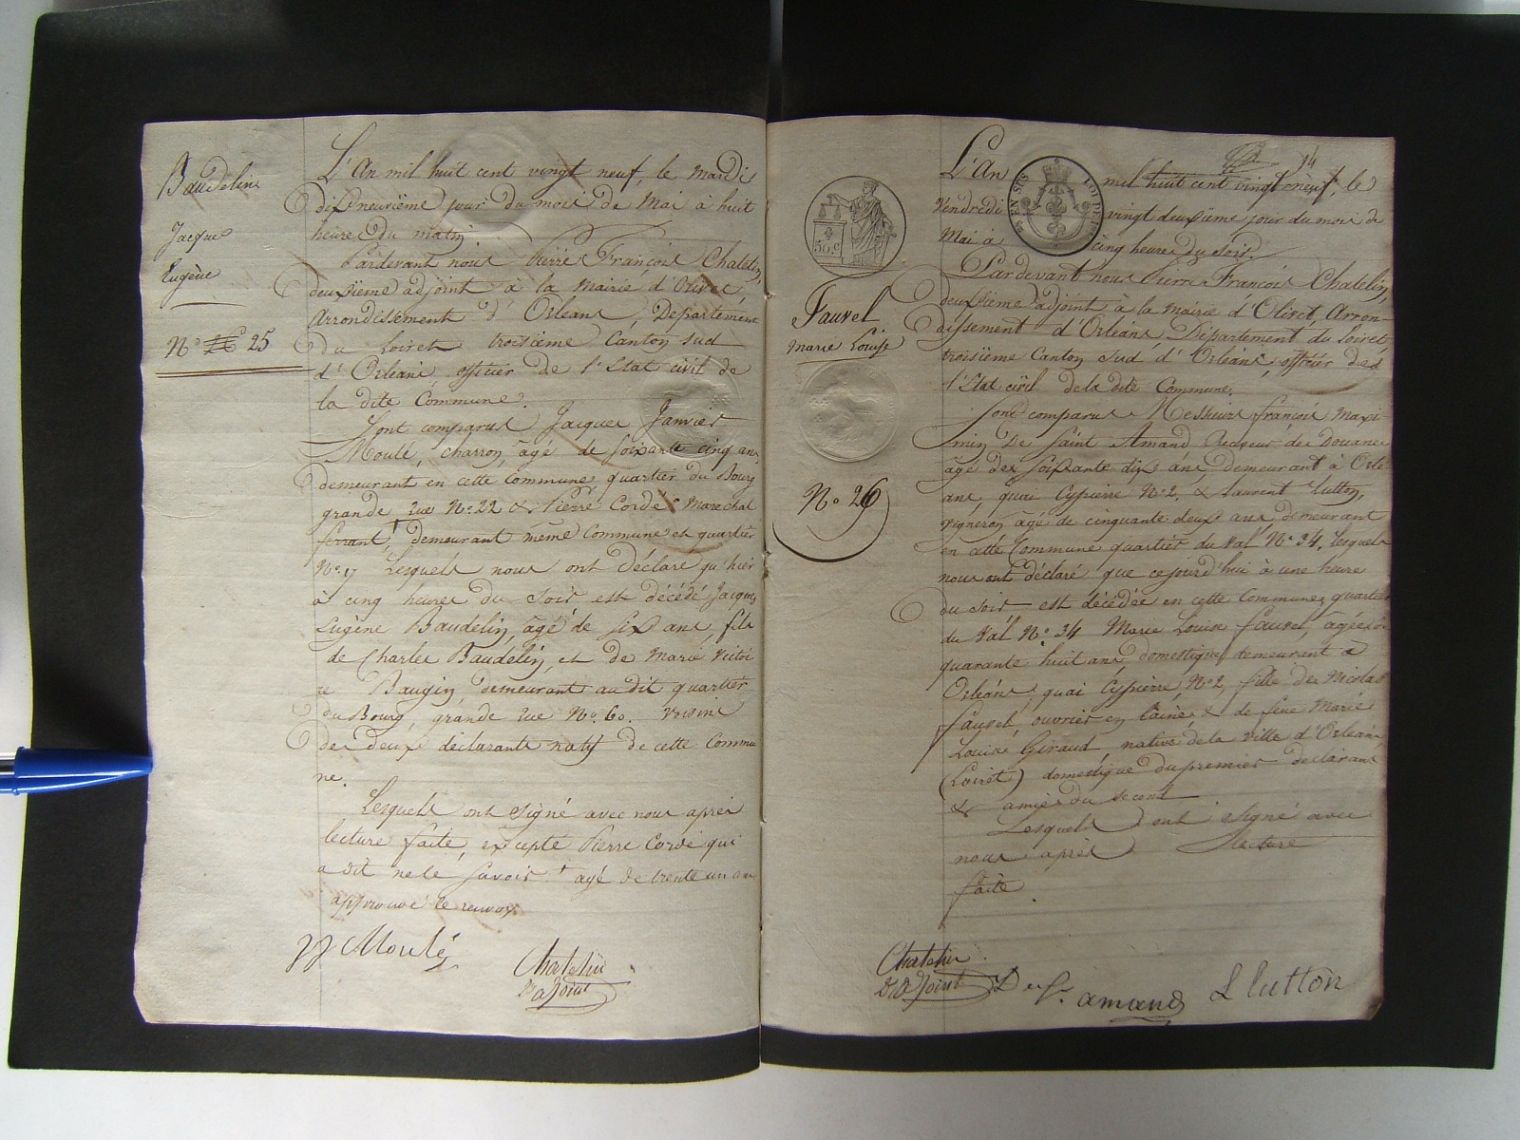 Baudelin
Jacques
Eugène
N° 25
L'An mil huit cent vingt neuf, le mardi
dix neuvième jour du mois de Mai à huit
heure du matin
Pardevant nous Pierre François Chatelin,
deuxième adjoint à la Mairie d'Olivet,
Arrondissement d'Orléans, Département
du Loiret troisième Canton Sud
d'Orléans, officier de l'Etat civil de
la dite Commune.
Sont comparus Jacques Janvier
Moulé, charron, âgé de soixante cinq ans,
demeurant en cette Commune quartier du Bourg
grande rue N° 22 & Pierre Cordé Marechal
ferrant, demeurant même Commune et quartier
N° 17 Lesquels nous ont déclaré qu'hier
à cinq heures du soir est décédé Jacques
Eugène Baudelin, âgé de six ans, fils
de Charles Baudelin, et de Marie Victoi
re Baugin demeurant au dit quartier
du Bourg, grande rue N° 60. voisins
des deux déclarants natif de cette Commu
ne.
Lesquels ont signé avec nous après
lecture faite, excepté Pierre Cordé qui
a dit ne le savoir. + agé de trente un an
approuvé le renvoy.
JJ Moulé
Chatelin
adjoint
14
50 c
Fauvel
Marie Louise
N° 26
L'An mil huit cent vingt neuf, le
Vendredi vingt deuxième jour du mois de
Mai à cinq heures du soir.
Pardevant nous Pierre François Chatelin,
deuxième adjoint à la mairie d'Olivet, Arron-
dissement d'Orléans Département du Loiret,
troisième Canton Sud d'Orléans, officier de
l'Etat civil de la dite Commune.
Sont comparus Messieurs François Maxi
min De Saint Amand Receveur des Douanes
âgé de soixante dix ans, demeurant à Orlé
ans, quai Cypierre N° 2, & Laurent Lutton,
vigneron âgé de cinquante deux ans, demeurant
en cette Commune quartier du Val N° 34, Lesquels
nous ont déclaré que cejourd'hui à une heure
du soir est décédée en cette Commune, quartier
du Val N° 34 Marie Louise Fauvel, âgée de
quarante huit ans domestique demeurant à
Orléans, quai Cypierre N° 2, fille de Nicolas
Fauvel, ouvrier en laine & de feue Marie
Louise Giraud, native de la ville d'Orléans,
(Loiret) domestique du premier déclarant
& amie du second
Lesquels ont signé avec
nous après lecture
faite.
Chatelin
adjoint
De St. amand
L Lutton